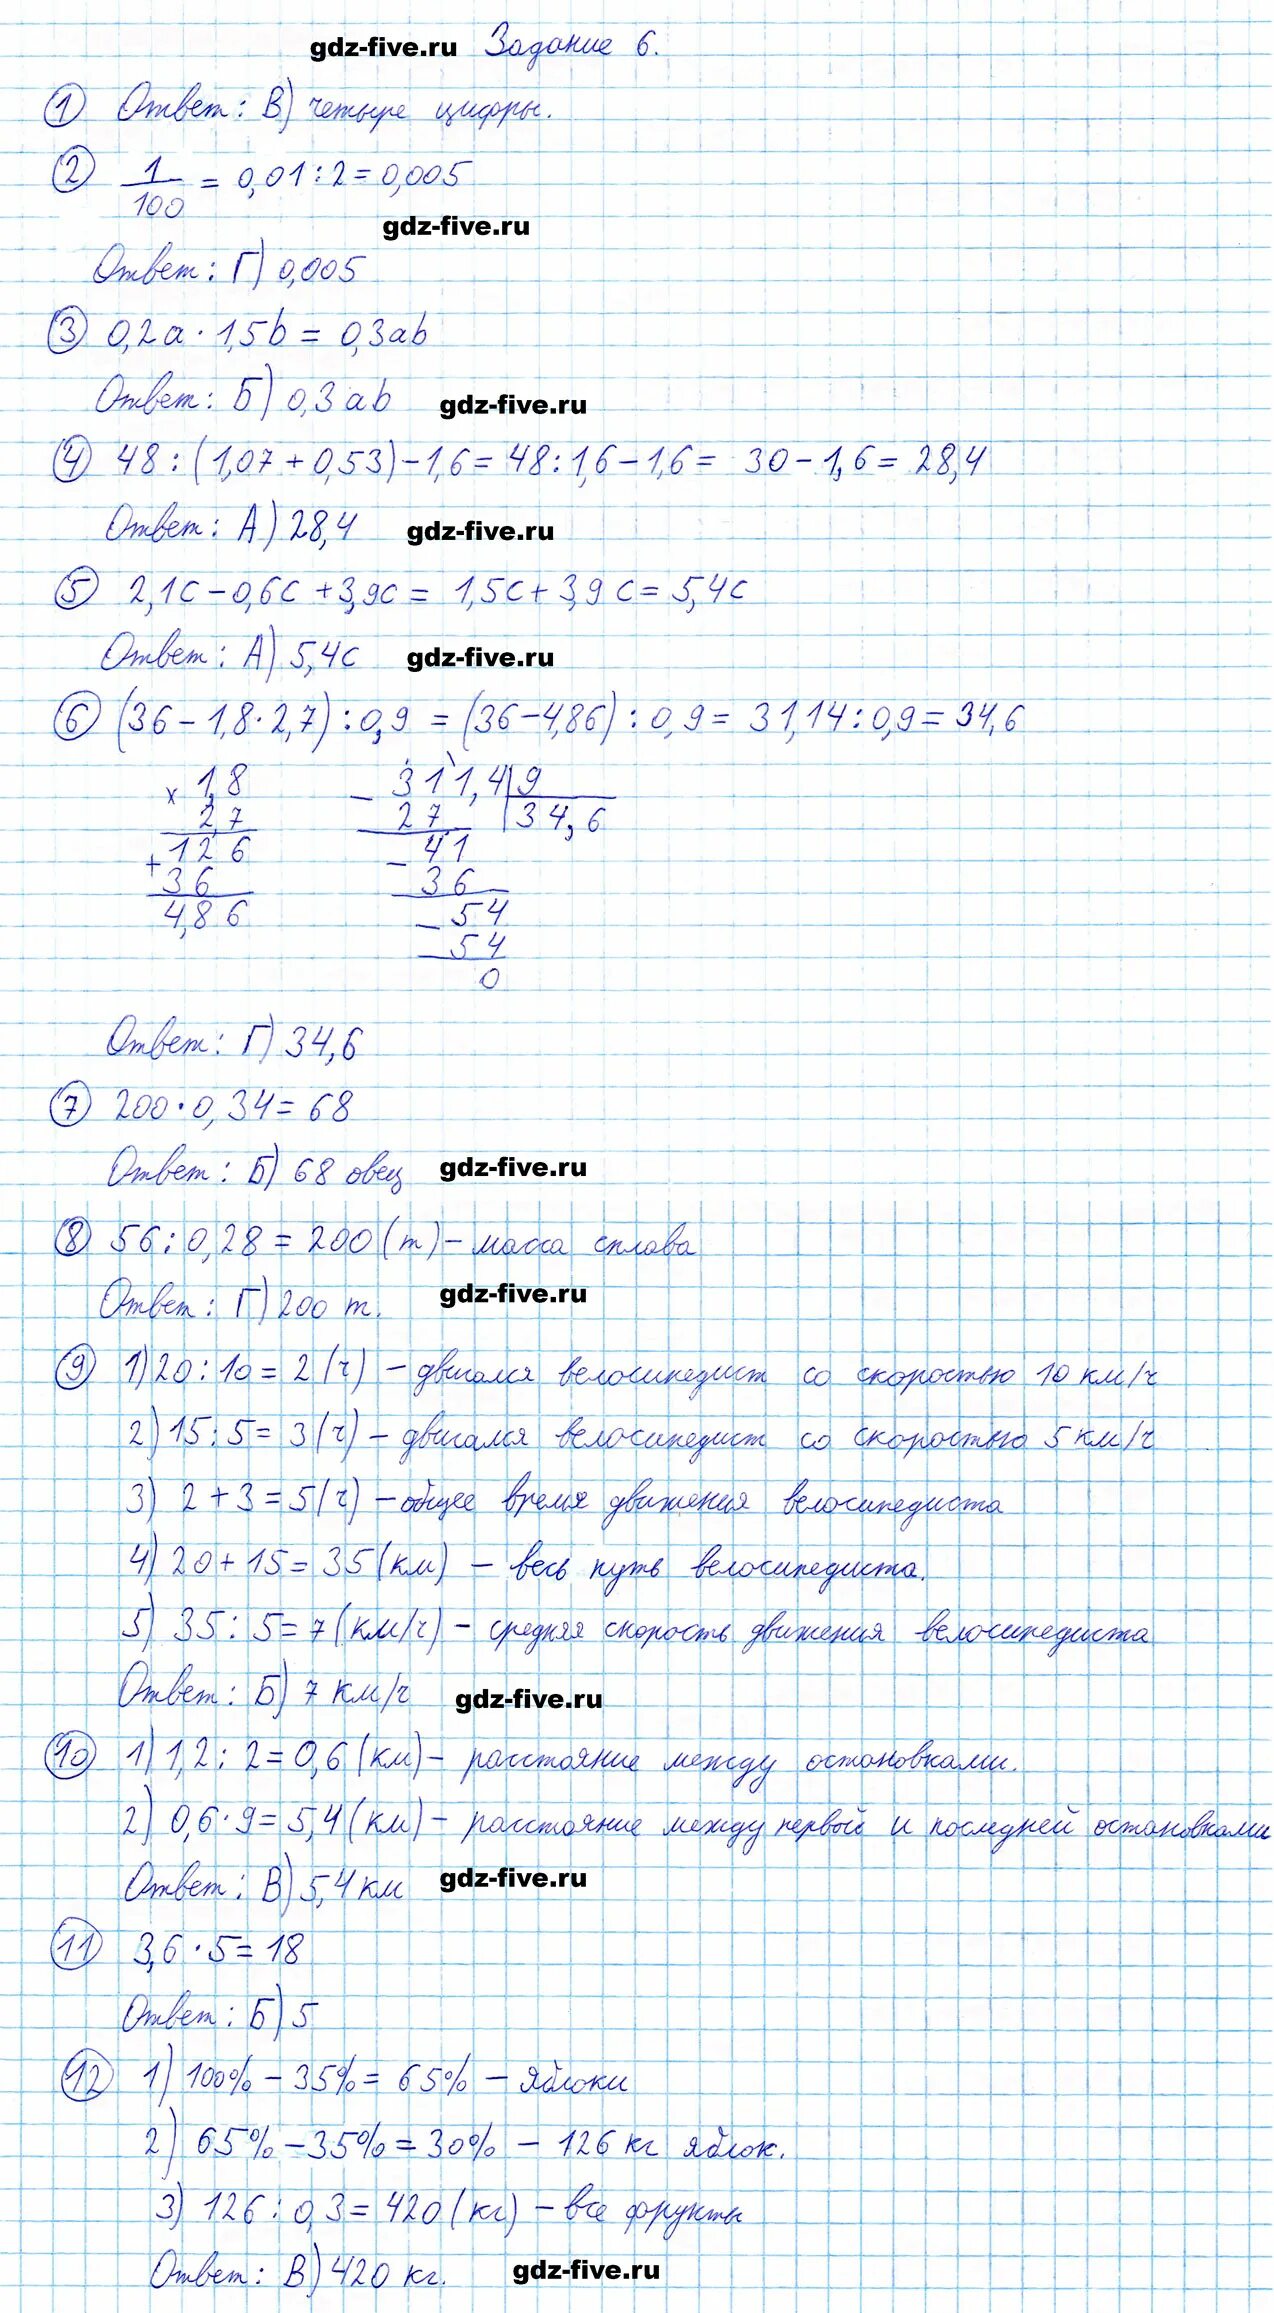 gdz-five.ru Задание 6.
① Ответ: В) четыре цифры.
② 1/100 = 0,01 : 2 = 0,005
gdz-five.ru
Ответ: Г) 0,005
③ 0,2a · 1,5b = 0,3ab
Ответ: Б) 0,3ab gdz-five.ru
④ 48 : (1,07 + 0,53) - 1,6 = 48 : 1,6 - 1,6 = 30 - 1,6 = 28,4
Ответ: А) 28,4 gdz-five.ru
⑤ 2,1c - 0,6c + 3,9c = 1,5c + 3,9c = 5,4c
Ответ: А) 5,4c gdz-five.ru
⑥ (36 - 1,8 · 2,7) : 0,9 = (36 - 4,86) : 0,9 = 31,14 : 0,9 = 34,6
x 1,8 - 311,4 | 9
2,7 27 | 34,6
+ 126 - 41
36 36
4,86 - 54
54
0
Ответ: Г) 34,6
⑦ 200 · 0,34 = 68
Ответ: Б) 68 овец gdz-five.ru
⑧ 56 : 0,28 = 200 (т) - масса сплава
Ответ: Г) 200 т. gdz-five.ru
⑨ 1) 20 : 10 = 2 (ч) - двигался велосипедист со скоростью 10 км/ч
2) 15 : 5 = 3 (ч) - двигался велосипедист со скоростью 5 км/ч
3) 2 + 3 = 5 (ч) - общее время движения велосипедиста
4) 20 + 15 = 35 (км) - весь путь велосипедиста.
5) 35 : 5 = 7 (км/ч) - средняя скорость движения велосипедиста
Ответ: Б) 7 км/ч gdz-five.ru
⑩ 1) 1,2 : 2 = 0,6 (км) - расстояние между остановками.
2) 0,6 · 9 = 5,4 (км) - расстояние между первой и последней остановками
Ответ: В) 5,4 км gdz-five.ru
⑪ 3,6 · 5 = 18
Ответ: Б) 5
⑫ 1) 100% - 35% = 65% - яблоки
2) 65% - 35% = 30% - 126 кг яблок.
3) 126 : 0,3 = 420 (кг) - все фрукты
Ответ: В) 420 кг. gdz-five.ru